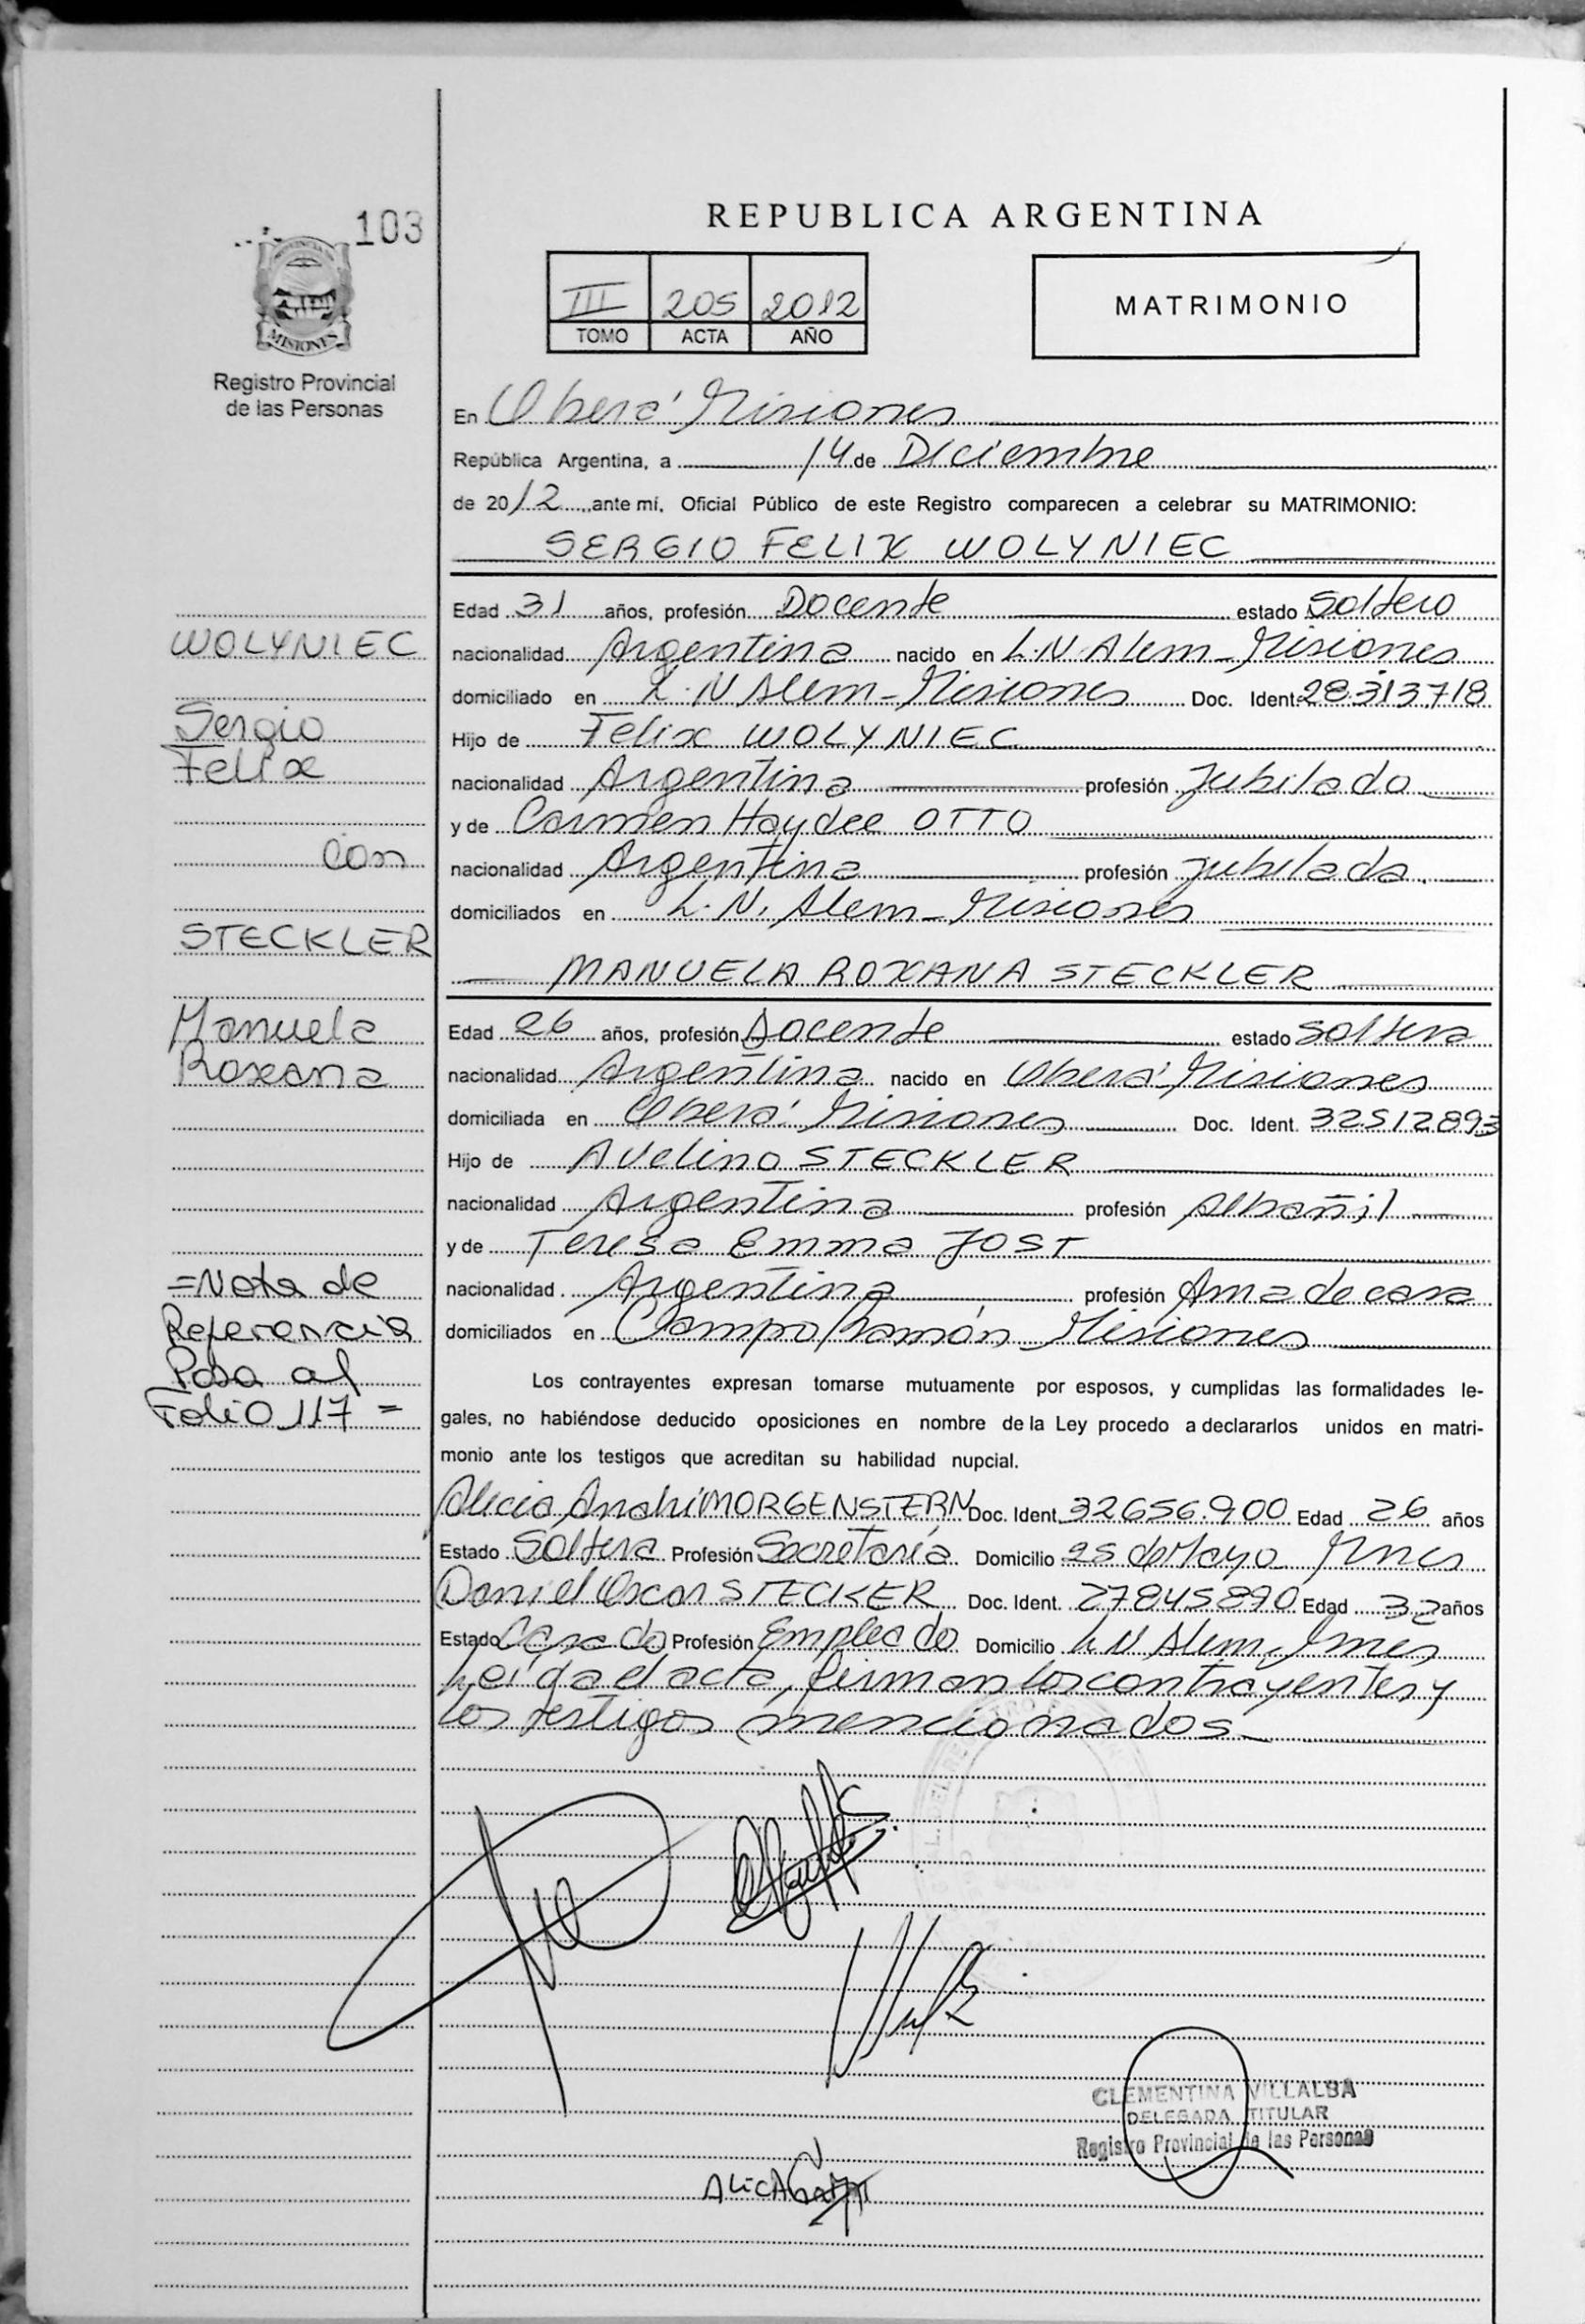 103
PROVINCIA DE
MISIONES
Registro Provincial
de las Personas
REPUBLICA ARGENTINA
III 205 2012
TOMO ACTA AÑO
MATRIMONIO
En Oberá Misiones
República Argentina, a 14 de Diciembre
de 2012 ante mí, Oficial Público de este Registro comparecen a celebrar su MATRIMONIO:
SERGIO FELIX WOLYNIEC
Edad 31 años, profesión Docente estado Soltero
nacionalidad Argentina nacido en L.N. Alem - Misiones
domiciliado en L.N Alem - Misiones Doc. Ident. 28.313.718
Hijo de Felix WOLYNIEC
nacionalidad Argentina profesión Jubilado
y de Carmen Haydee OTTO
nacionalidad Argentina profesión Jubilada.
domiciliados en L.N. Alem - Misiones
MANUELA ROXANA STECKLER
Edad 26 años, profesión Docente estado Soltera
nacionalidad Argentina nacido en Oberá Misiones
domiciliada en Oberá Misiones Doc. Ident. 32512893
Hijo de Avelino STECKLER
nacionalidad Argentina profesión Albañil
y de Teresa Emma JOST
nacionalidad Argentina profesión Ama de casa
domiciliados en Campo Ramón Misiones
Los contrayentes expresan tomarse mutuamente por esposos, y cumplidas las formalidades le-
gales, no habiéndose deducido oposiciones en nombre de la Ley procedo a declararlos unidos en matri-
monio ante los testigos que acreditan su habilidad nupcial.
Alicia Anahi MORGENSTERN Doc. Ident. 32656.900 Edad 26 años
Estado Soltera Profesión Secretaria Domicilio 25 de Mayo Mnes
Daniel Oscar STECKER Doc. Ident. 27845890 Edad 32 años
Estado Casado Profesión Empleado Domicilio L N Alem, Mnes
Leída el acta, firman los contrayentes y
los testigos mencionados
WOLYNIEC
Sergio
Felix
con
STECKLER
Manuela
Roxana
=Nota de
Referencia
Pasa al
Folio 117 =
CLEMENTINA VILLALBA
DELEGADA TITULAR
Registro Provincial de las Personas